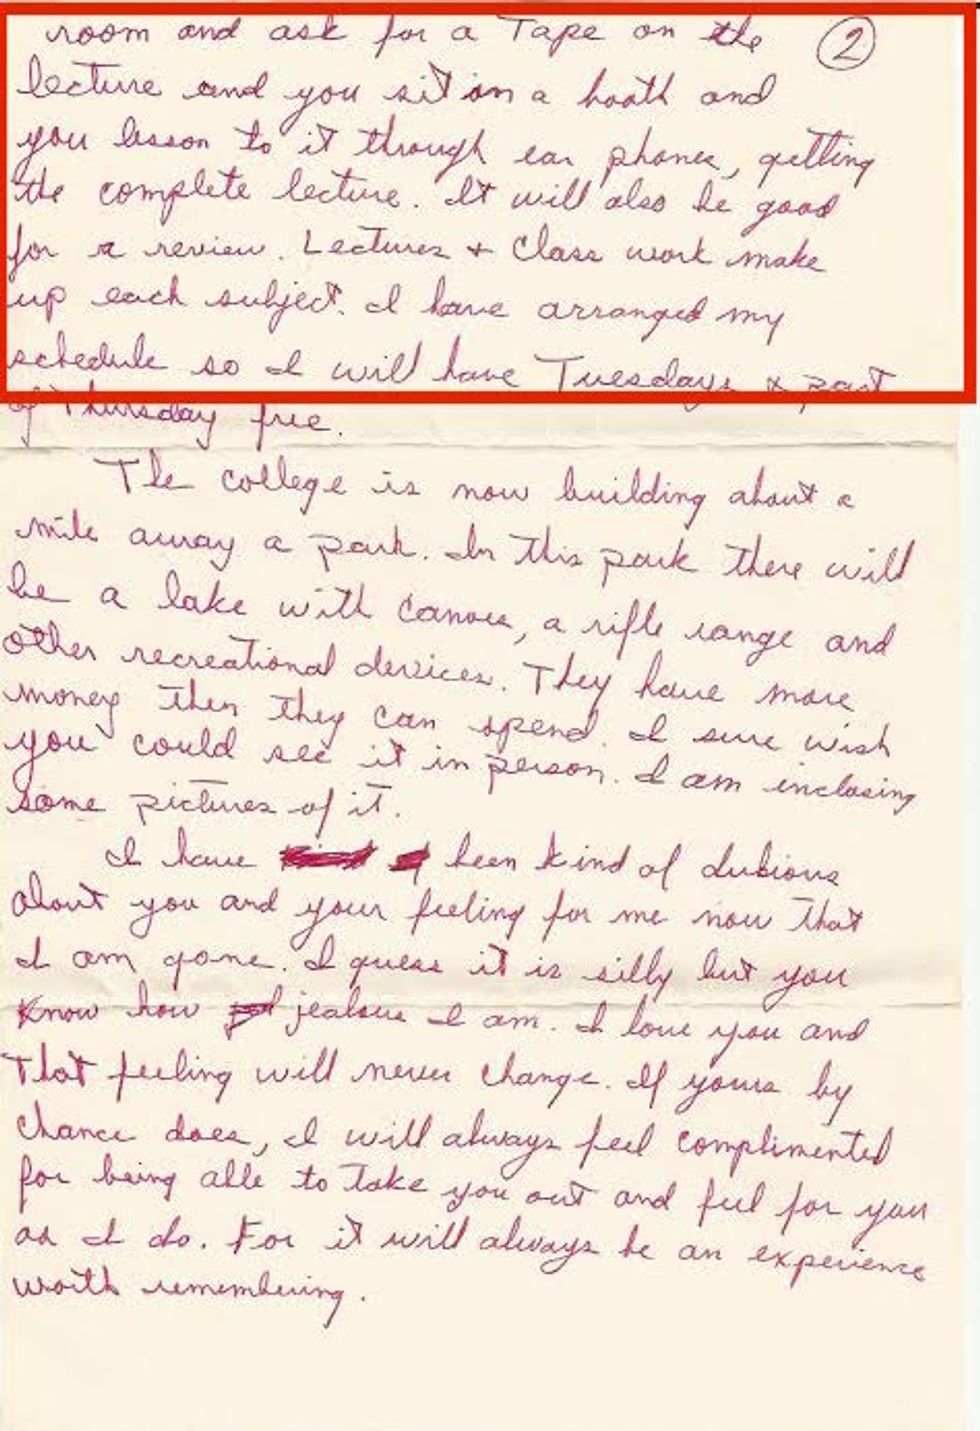 room and ask for a Tape on the ②
lecture and you sit in a booth and
you lesson to it through ear phones, getting
the complete lecture. It will also be good
for a review. Lectures + Class work make
up each subject. I have arranged my
schedule so I will have Tuesdays & part
of Thursday free.
The college is now building about a
mile away a park. In this park there will
be a lake with canoes, a rifle range and
other recreational devices. They have more
money then they can spend. I sure wish
you could see it in person. I am inclosing
some pictures of it.
I have been kind of dubious
about you and your feeling for me now that
I am gone. I guess it is silly but you
know how jealous I am. I love you and
That feeling will never change. If yours by
chance does, I will always feel complimented
for being able to take you out and feel for you
as I do. For it will always be an experience
worth remembering.